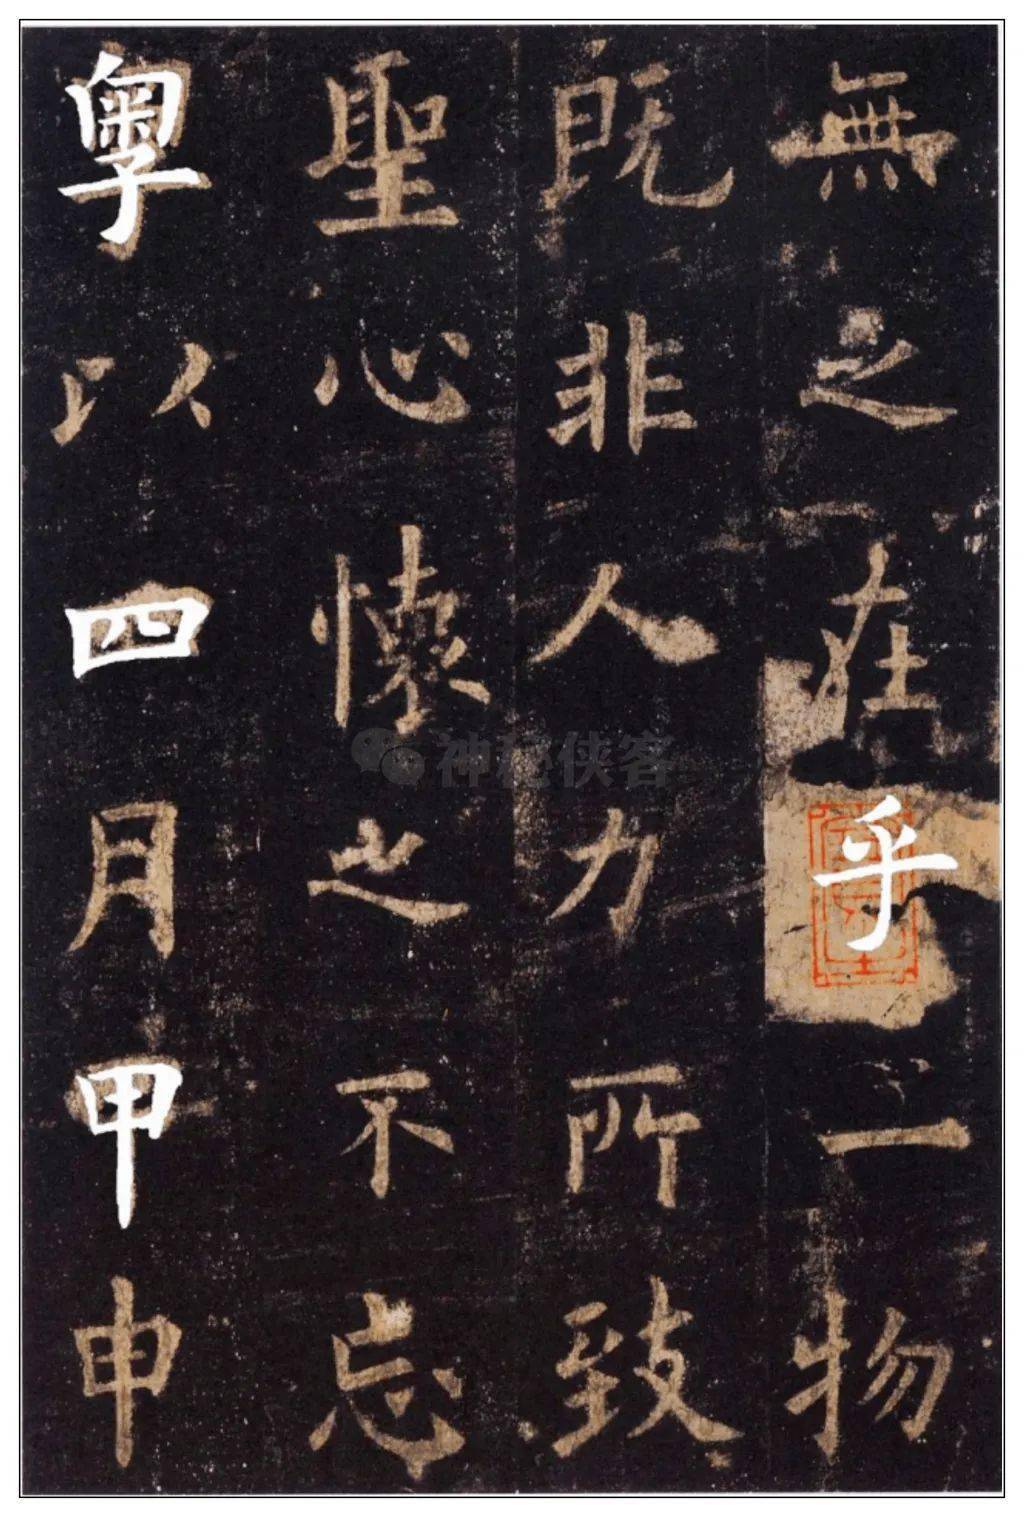 無之在乎一物
既非人力所致
聖心懷之不忘
粵以四月甲申
神秘侠客